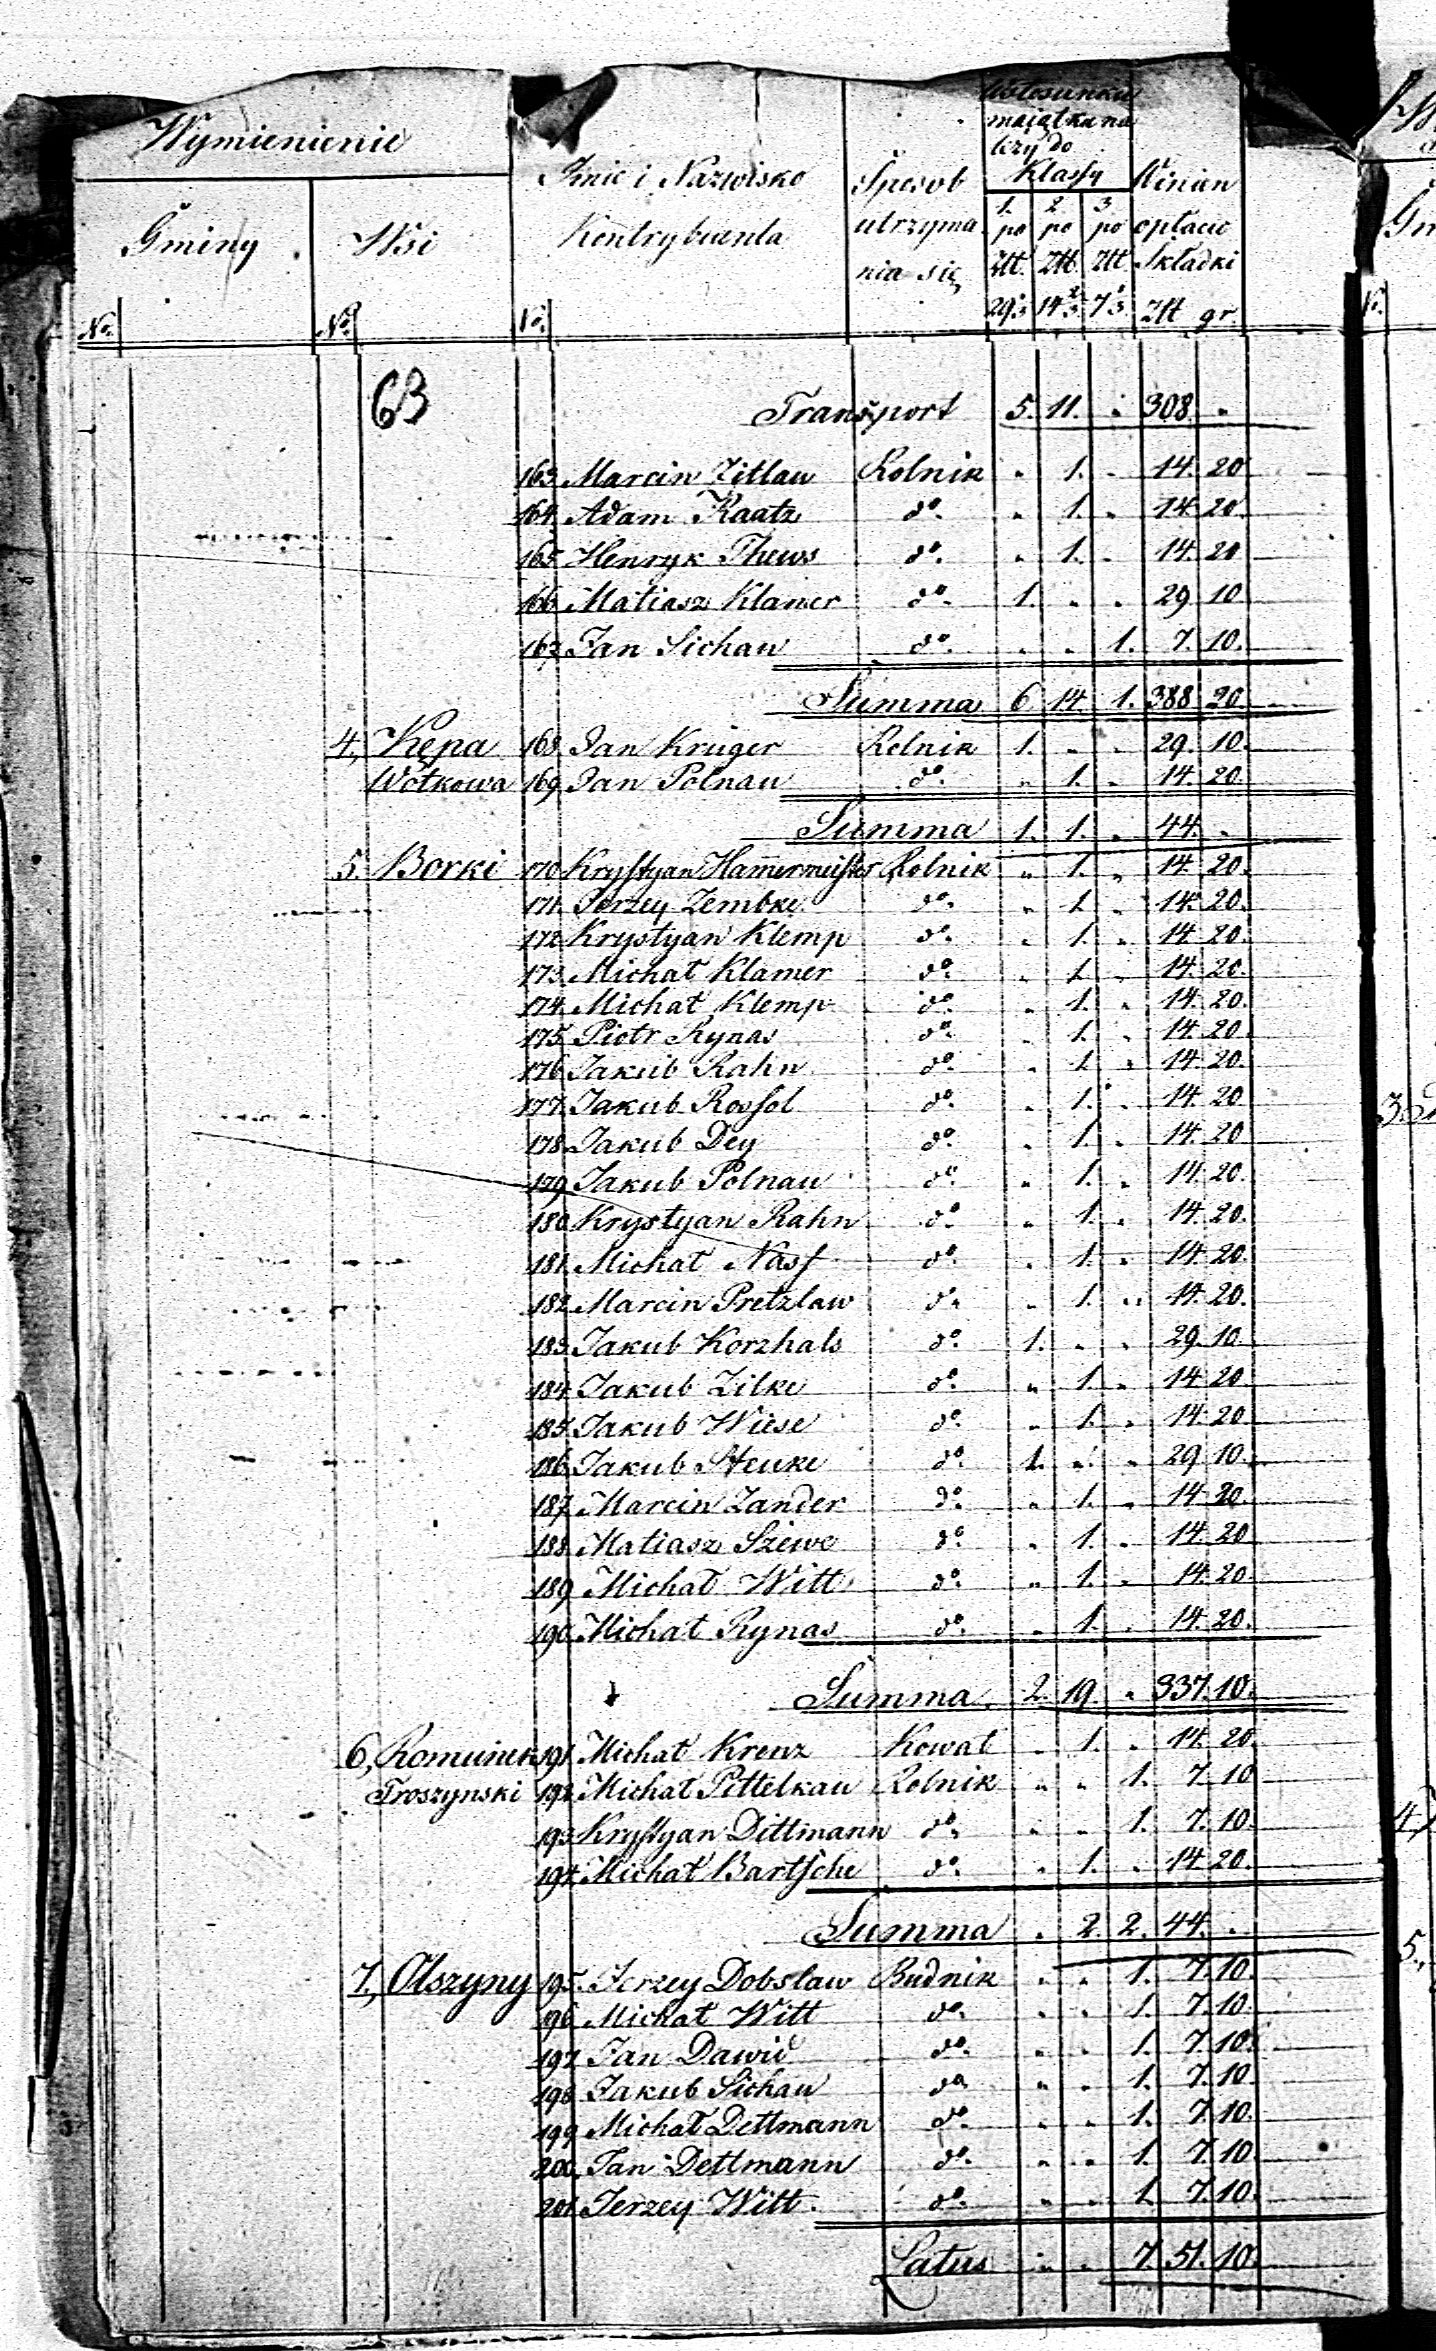 Wymienienie
Gminy
Wsi
Imie i Nazwisko
Kontrybuenta
Sposob
utrzyma
nia się
W stosunku
maiątku na
leży do
Klassy
1. 2. 3.
po po po
Ztt. Ztt. Ztt.
29⅓ 14⅔ 7⅓
Winien
opłacić
Składki
Ztt gr.
No. No. No.
63
Transport 5. 11. „ 308. „
163. Marcin Zittlau Rolnik „ 1. „ 14. 20
164. Adam Kaatz do. „ 1. „ 14. 20.
165. Henryk Thews do. „ 1. „ 14. 20
166. Matiasz Klamer do. 1. „ „ 29 10
167. Jan Sichau do. „ „ 1. 7. 10.
Summa 6 14. 1. 388 20
4, Kępa 168. Jan Krüger Rolnik 1. „ „ 29. 10.
Wótkowa 169. Jan Polnau do. „ 1. „ 14. 20.
Summa 1. 1. „ 44. „
5. Borki 170 Krystyan Hamermeister Rolnik „ 1. „ 14. 20.
171. Jerzey Zembke do. „ 1. „ 14. 20.
172 Krystyan Klemp do. „ 1. „ 14. 20.
173. Michał Klamer do. „ 1. „ 14. 20.
174. Michał Klemp do. „ 1. „ 14. 20.
175. Piotr Rynas do. „ 1. „ 14. 20.
176 Jakub Rahn do. „ 1. „ 14. 20.
177. Jakub Rossol do. „ 1. „ 14. 20
178. Jakub Dey do. „ 1. „ 14. 20
179 Jakub Polnau do. „ 1. „ 14. 20.
180. Krystyan Rahn do. „ 1. „ 14. 20.
181. Michał Nass do. „ 1. „ 14. 20.
182. Marcin Pretzlaw do. „ 1. „ 14. 20.
183. Jakub Korzhals do. 1. „ „ 29. 10.
184. Jakub Zilke do. „ 1. „ 14 20.
185. Jakub Wiese do. „ 1. „ 14. 20
186. Jakub Steuke do. 1. „ „ 29 10.
187. Marcin Zander do. „ 1. „ 14 20.
188. Matiasz Sziewe do. „ 1. „ 14. 20
189 Michał Witt do. „ 1. „ 14. 20.
190. Michał Rynas do. „ 1. „ 14. 20.
Summa 2. 19. „ 337. 10.
6, Romunek 191. Michał Krenz Kowal „ 1. „ 14. 20.
Troszynski 192. Michał Pittelkau Rolnik „ „ 1. 7. 10
193. Krystyan Dittmann do. „ „ 1. 7. 10.
194. Michał Bartsche do. „ 1. „ 14. 20.
Summa „ 2. 2. 44. „
7, Olszyny 195. Jerzey Dobslaw Budnik „ „ 1. 7. 10.
196. Michał Witt do. „ „ 1. 7. 10.
197. Jan Dawid do. „ „ 1. 7. 10.
198. Jakub Sichau do. „ „ 1. 7. 10.
199. Michał Dettmann do. „ „ 1. 7. 10.
200. Jan Dettmann do. „ „ 1. 7. 10
201. Jerzey Witt. do. „ „ 1. 7. 10.
Latus „ „ 7. 51. 10.